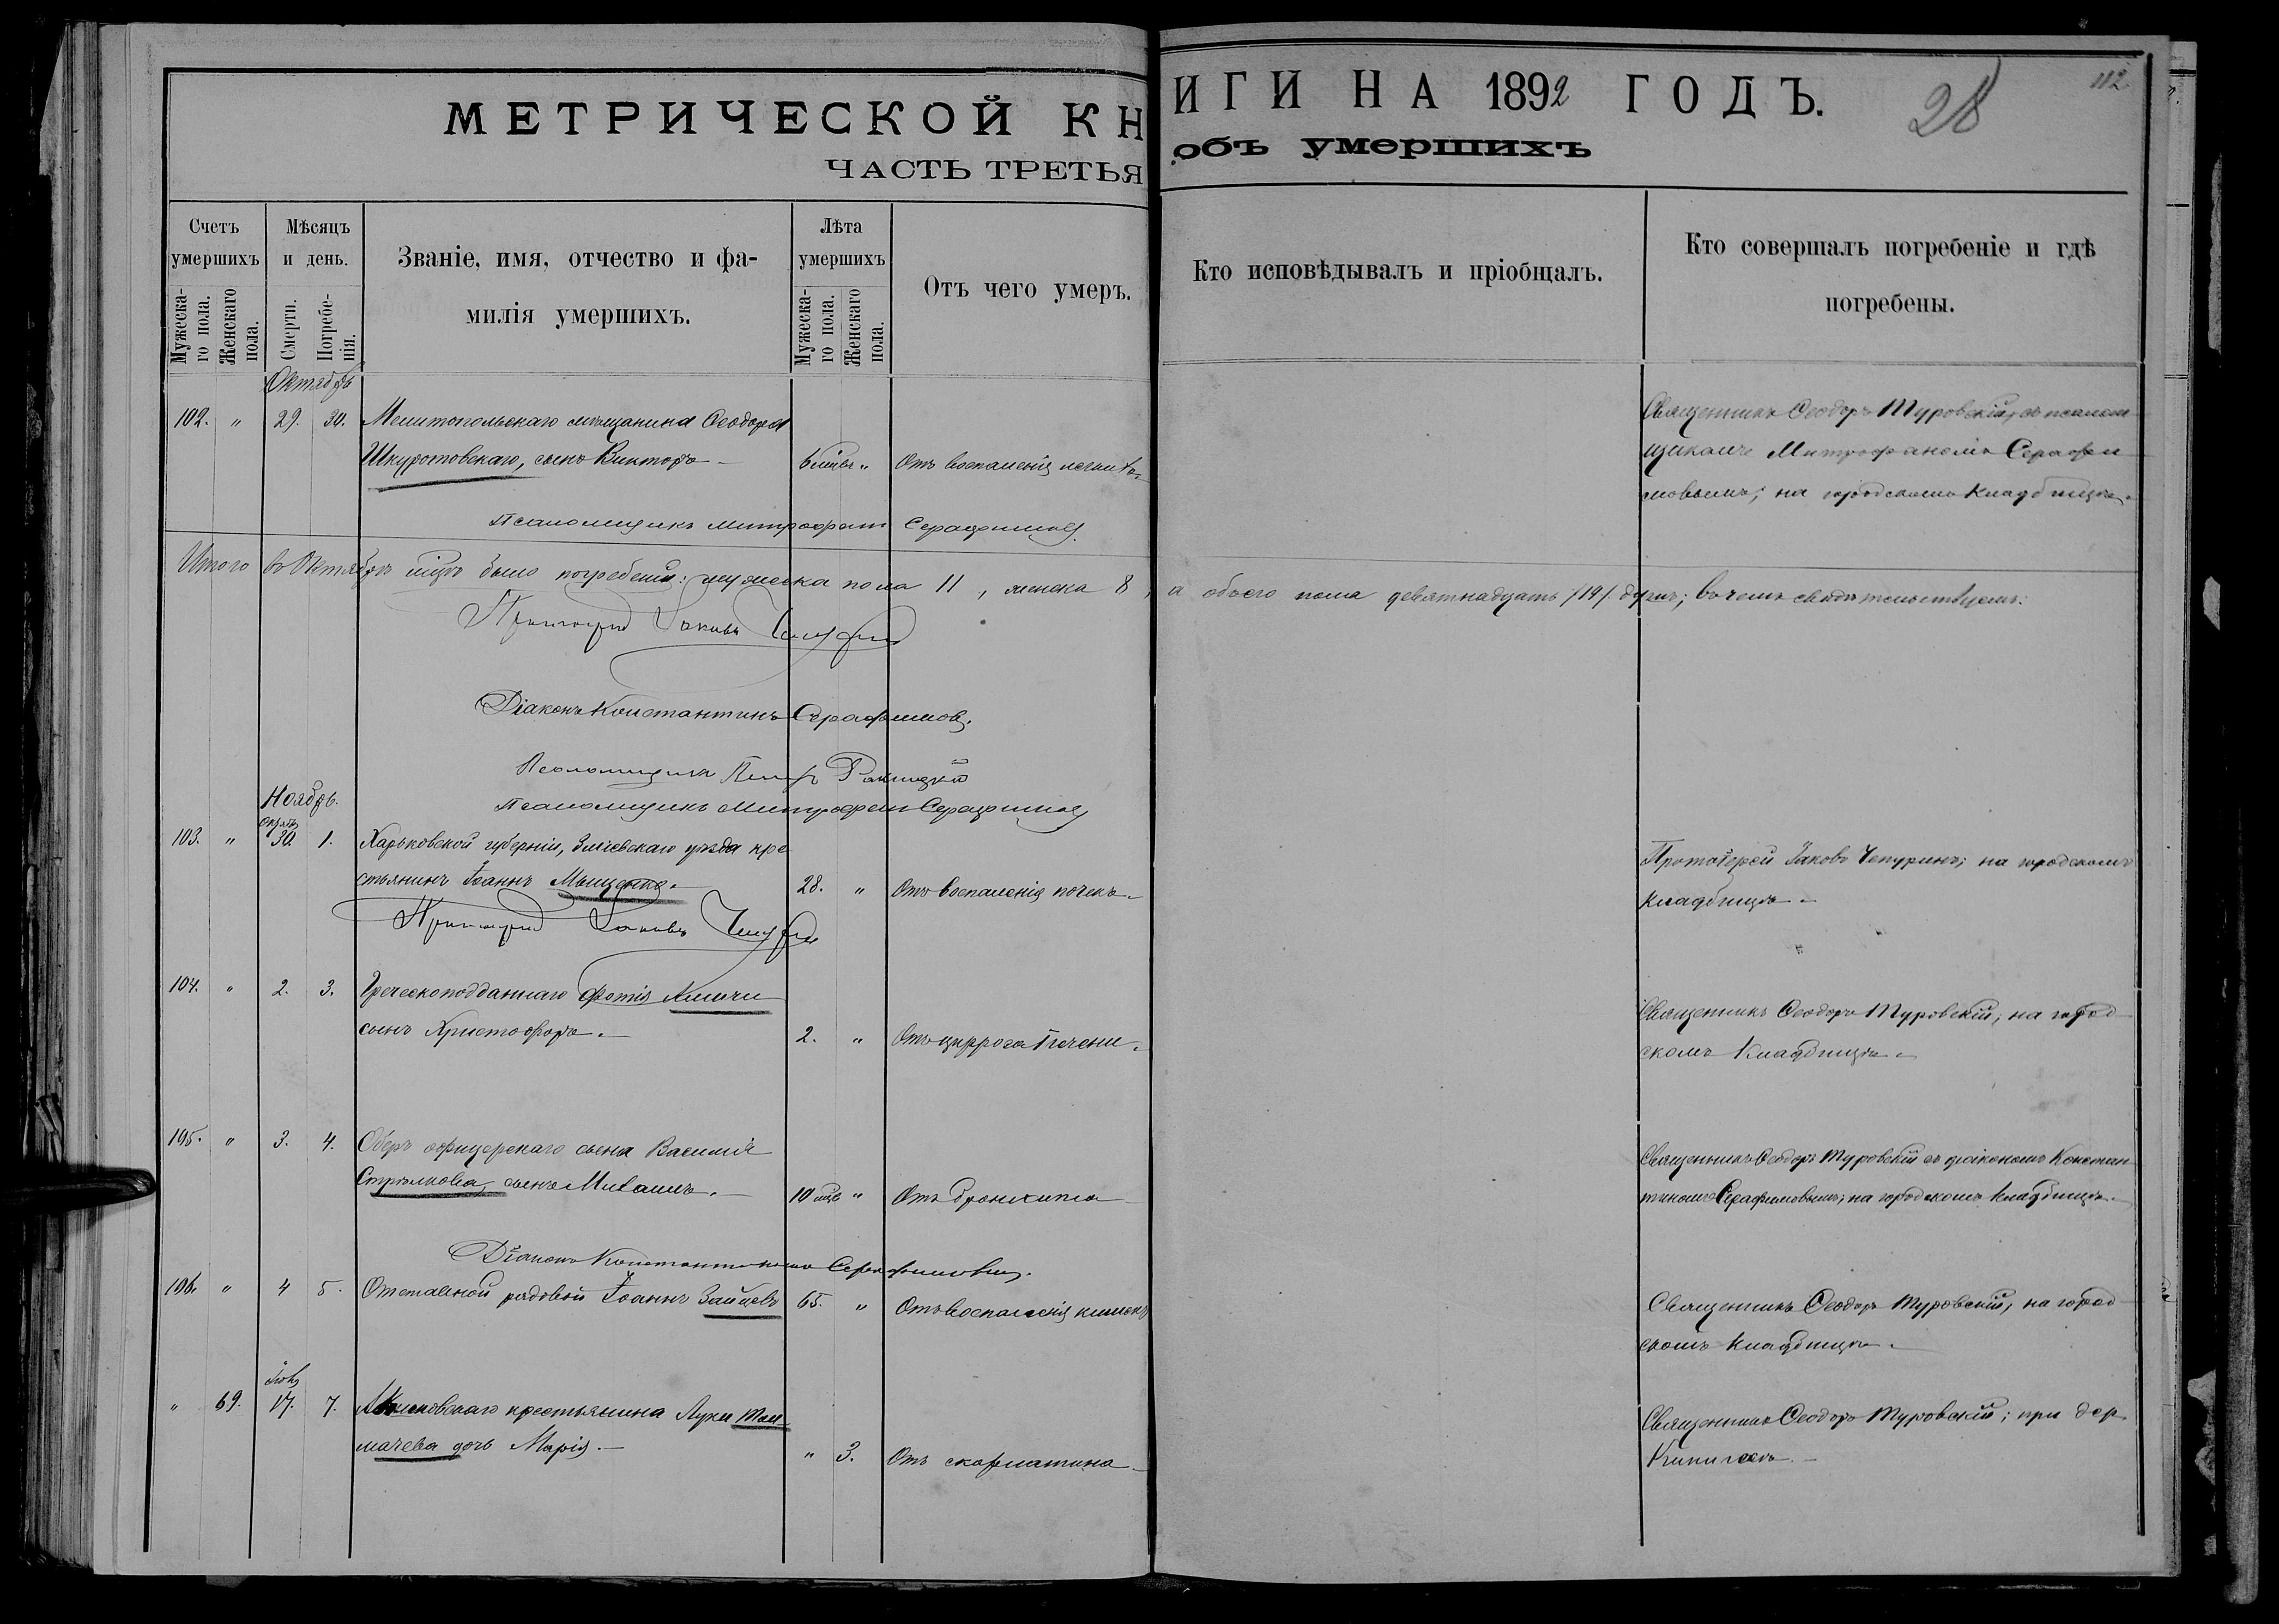 МЕТРИЧЕСКОЙ КНИГИ НА 1892 ГОДЪ.
28
112
ЧАСТЬ ТРЕТЬЯ объ умершихъ
Счетъ умершихъ
Мужеска-го пола.
Женскаго пола.
Мѣсяцъ и день.
Смерти.
Погребе-нія.
Званіе, имя, отчество и фа-
милія умершихъ.
Лѣта умершихъ
Мужеска-го пола.
Женскаго пола.
Отъ чего умеръ.
Кто исповѣдывалъ и пріобщалъ.
Кто совершалъ погребеніе и гдѣ
погребены.
Октябрь
102. " 29. 30. Мелитопольскаго мѣщанина Ѳеодора
Шкуротовскаго, сынъ Викторъ – 6 мцвъ " Отъ воспаленія легкихъ
Священникъ Ѳеодоръ Туровскій, съ псалом
щикомъ Митрофаномъ Серафи
мовымъ; на городскомъ кладбищѣ.
Псаломщикъ Митрофанъ Серафимовъ
Итого въ Октябрѣ мцѣ было погребены: мужеска пола 11, женска 8, а обоего пола девятнадцать /19/ душъ; въ чемъ свидѣтельствуемъ:
Протоіерей Іаковъ Чепуринъ
Діаконъ Константинъ Серафимовъ.
Псаломщикъ Петръ
Псаломщикъ Митрофанъ Серафимовъ
Ноябрь.
Октяб.
103. " 30. 1. Харьковской губерніи, Зміевскаго уѣзда кре
стьянинъ Іоаннъ Мищенко. – 28. " Отъ воспаленія почекъ. –
Протоіерей Іаковъ Чепуринъ; на городскомъ
кладбищѣ –
Протоіерей Іаковъ Чепуринъ
104. " 2. 3. Греческоподданнаго Фотія
сынъ Христофоръ. – 2. " Отъ цирроза печени.
Священникъ Ѳеодоръ Туровскій; на город
скомъ кладбищѣ –
105. " 3. 4. Оберъ офицерскаго сына Василія
Стрѣлкова, сынъ Михаилъ. – 10 мцв " Отъ бронхита
Священникъ Ѳеодоръ Туровскій съ діакономъ Констан
тиномъ Серафимовымъ; на городскомъ кладбищѣ. –
Діаконъ Константинъ Серафимовъ.
106. " 4 5. Отставной рядовой Іоаннъ Зайцевъ 65. " Отъ воспаленія кишекъ
Священникъ Ѳеодоръ Туровскій; на город
скомъ кладбищѣ.
" 69. 17. 7. крестьянина Луки Тол
мачева дочь Марія. – " 3. Отъ скарлатина
Священникъ Ѳеодоръ Туровскій; при дер.